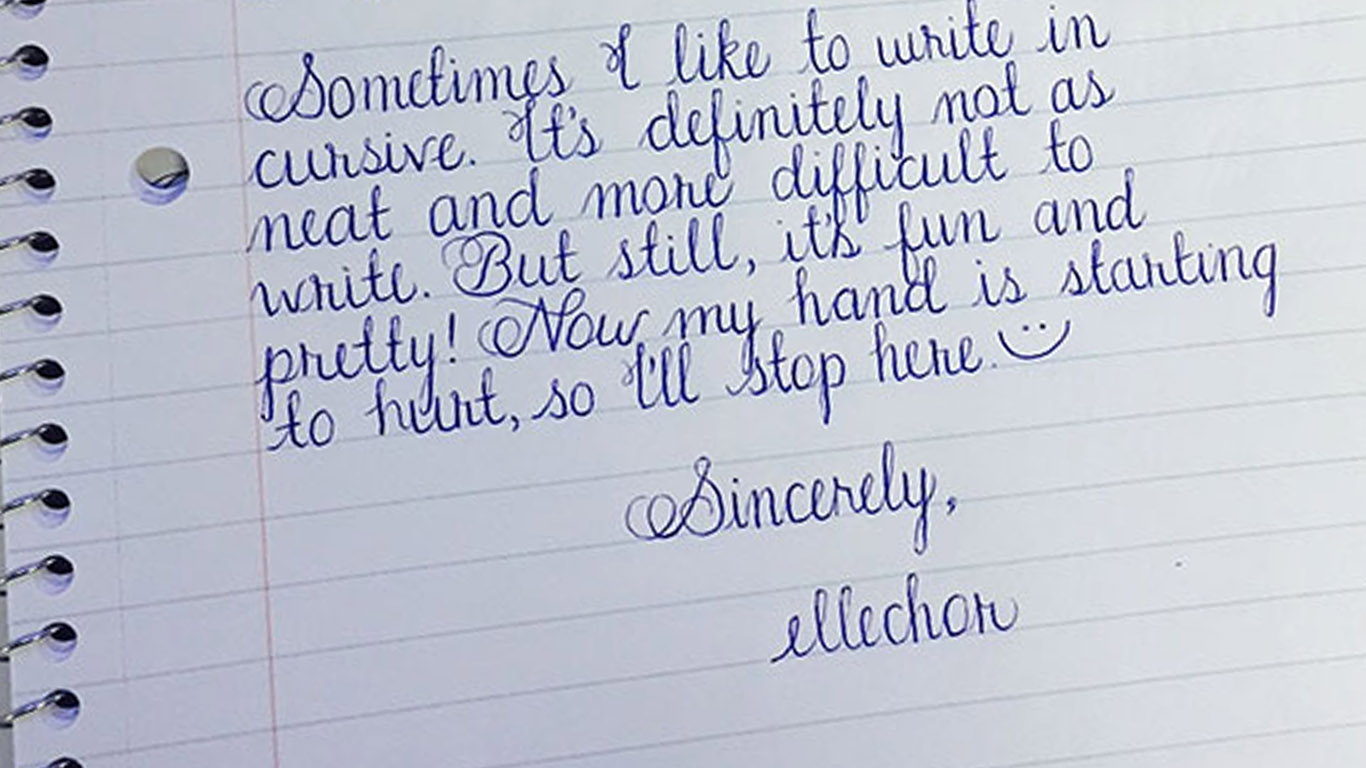 Sometimes I like to write in
cursive. It's definitely not as
neat and more difficult to
write. But still, it's fun and
pretty! Now my hand is starting
to hurt, so I'll stop here.
Sincerely,
ellechor